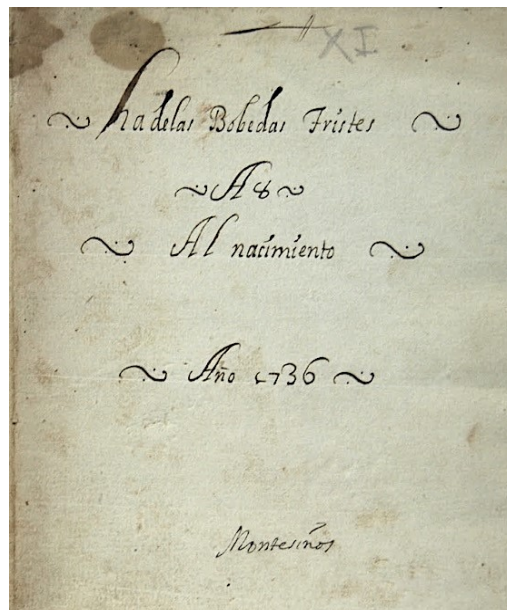 XI
ha delas Bobedas Tristes
A 8
Al nacimiento
Año 1736
Montesinos